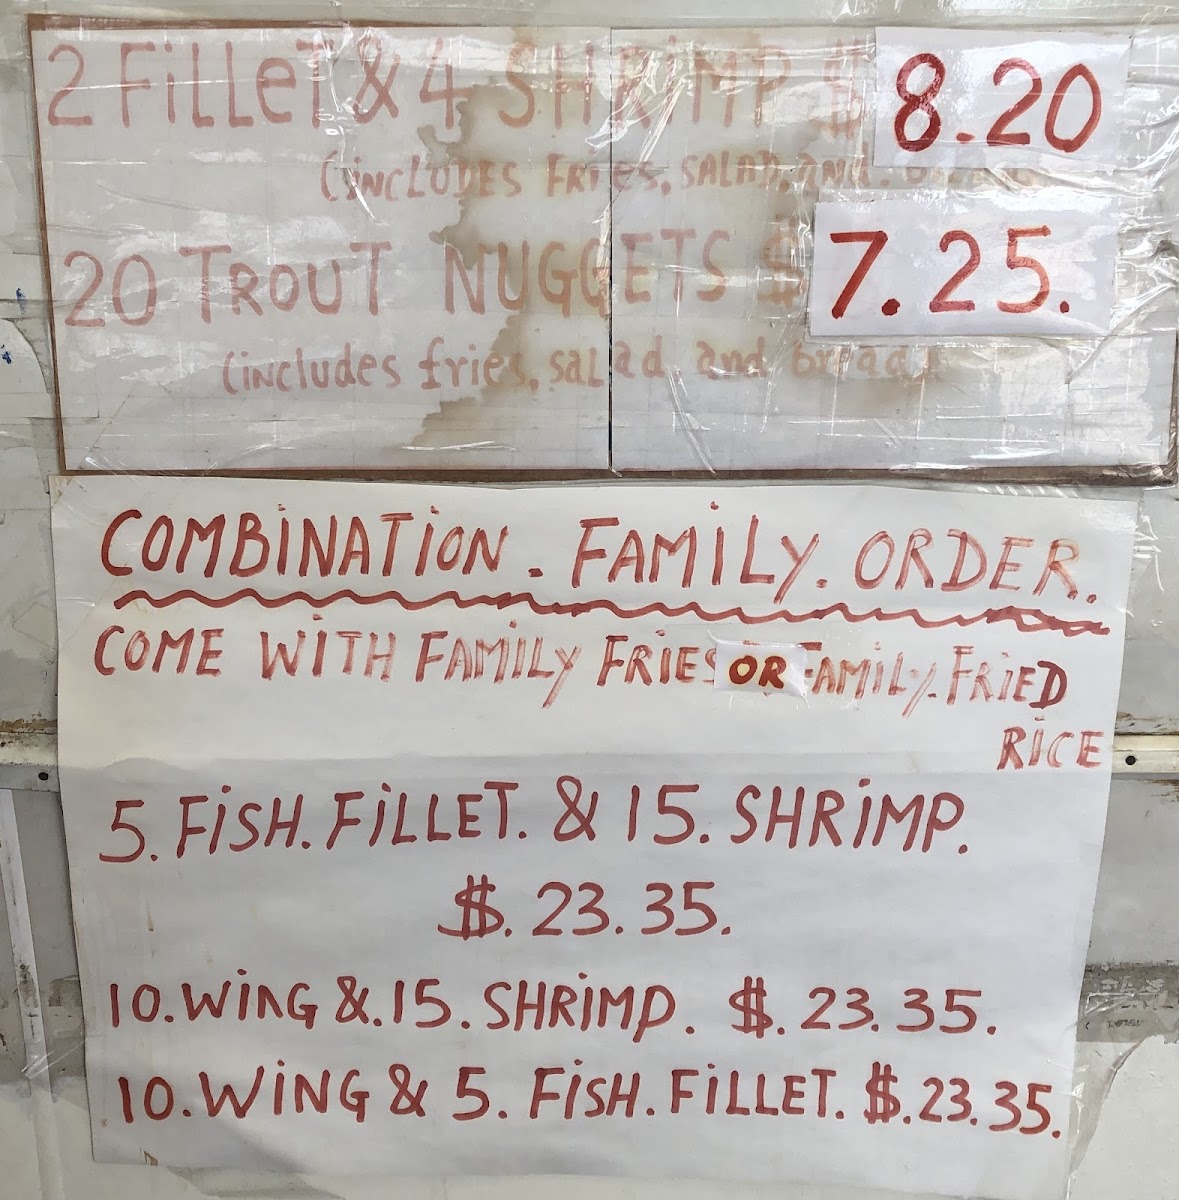 2 FiLLeT & 4 SHRiMP $ 8.20
(iNCLUDES FRies, SALAD, AND.
20 TROUT NUGGETS $ 7.25.
(includes fries, salad, and bread)
COMBiNATiON. FAMiLy. ORDER.
COME WiTH FAMiLy FRiES OR FAMiLy. FRiED
RiCE
5. FiSH. FiLLET. & 15. SHRiMP.
$. 23.35.
10. WiNG &. 15. SHRiMP. $. 23.35.
10. WiNG & 5. FiSH. FiLLET. $. 23.35.